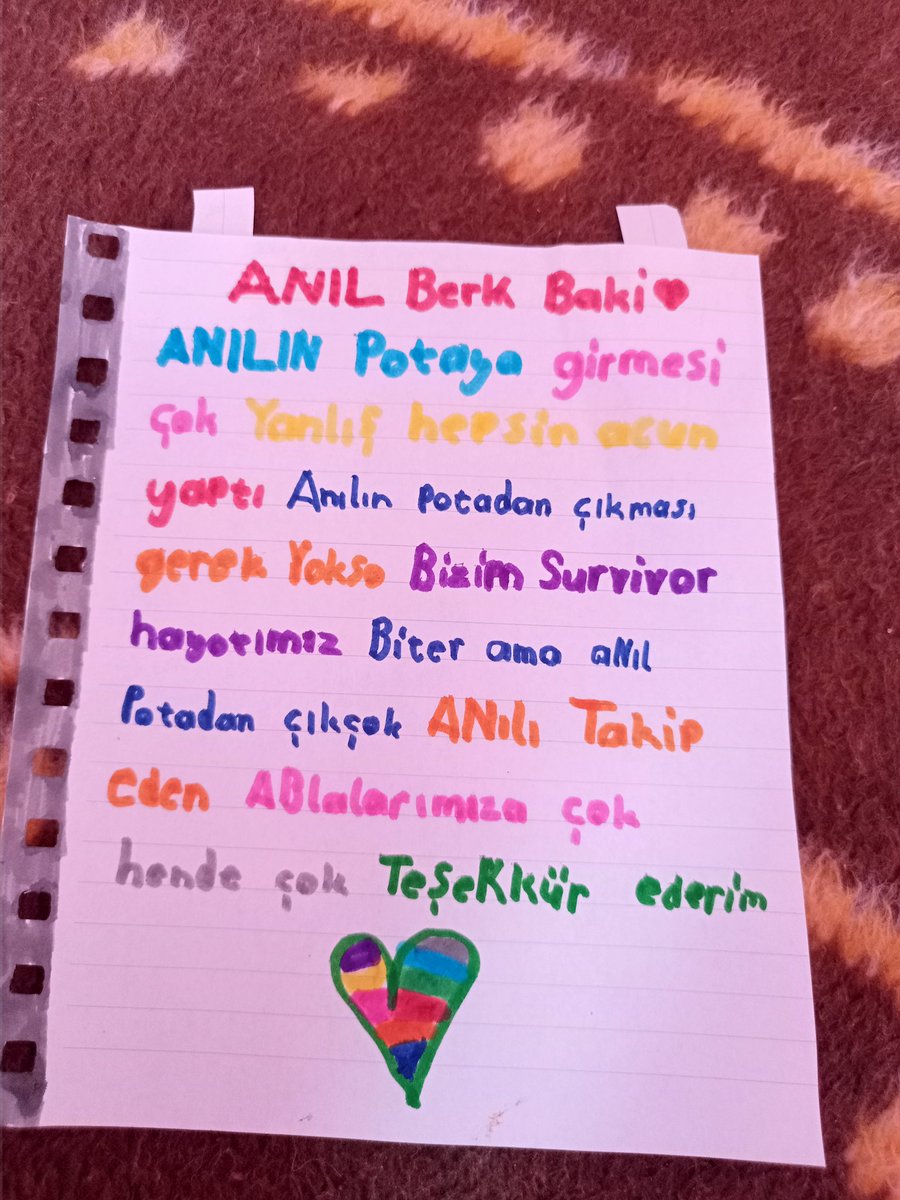 ANIL Berk Baki
ANILIN Potaya girmesi
çok Yanlış hepsin acun
yaptı Anılın potadan çıkması
gerek Yoksa Bizim Survivor
hayatımız Biter ama aNıl
Potadan çıkçok ANılı Takip
eden ABlalarımıza çok
hende çok TeşeKkür ederim